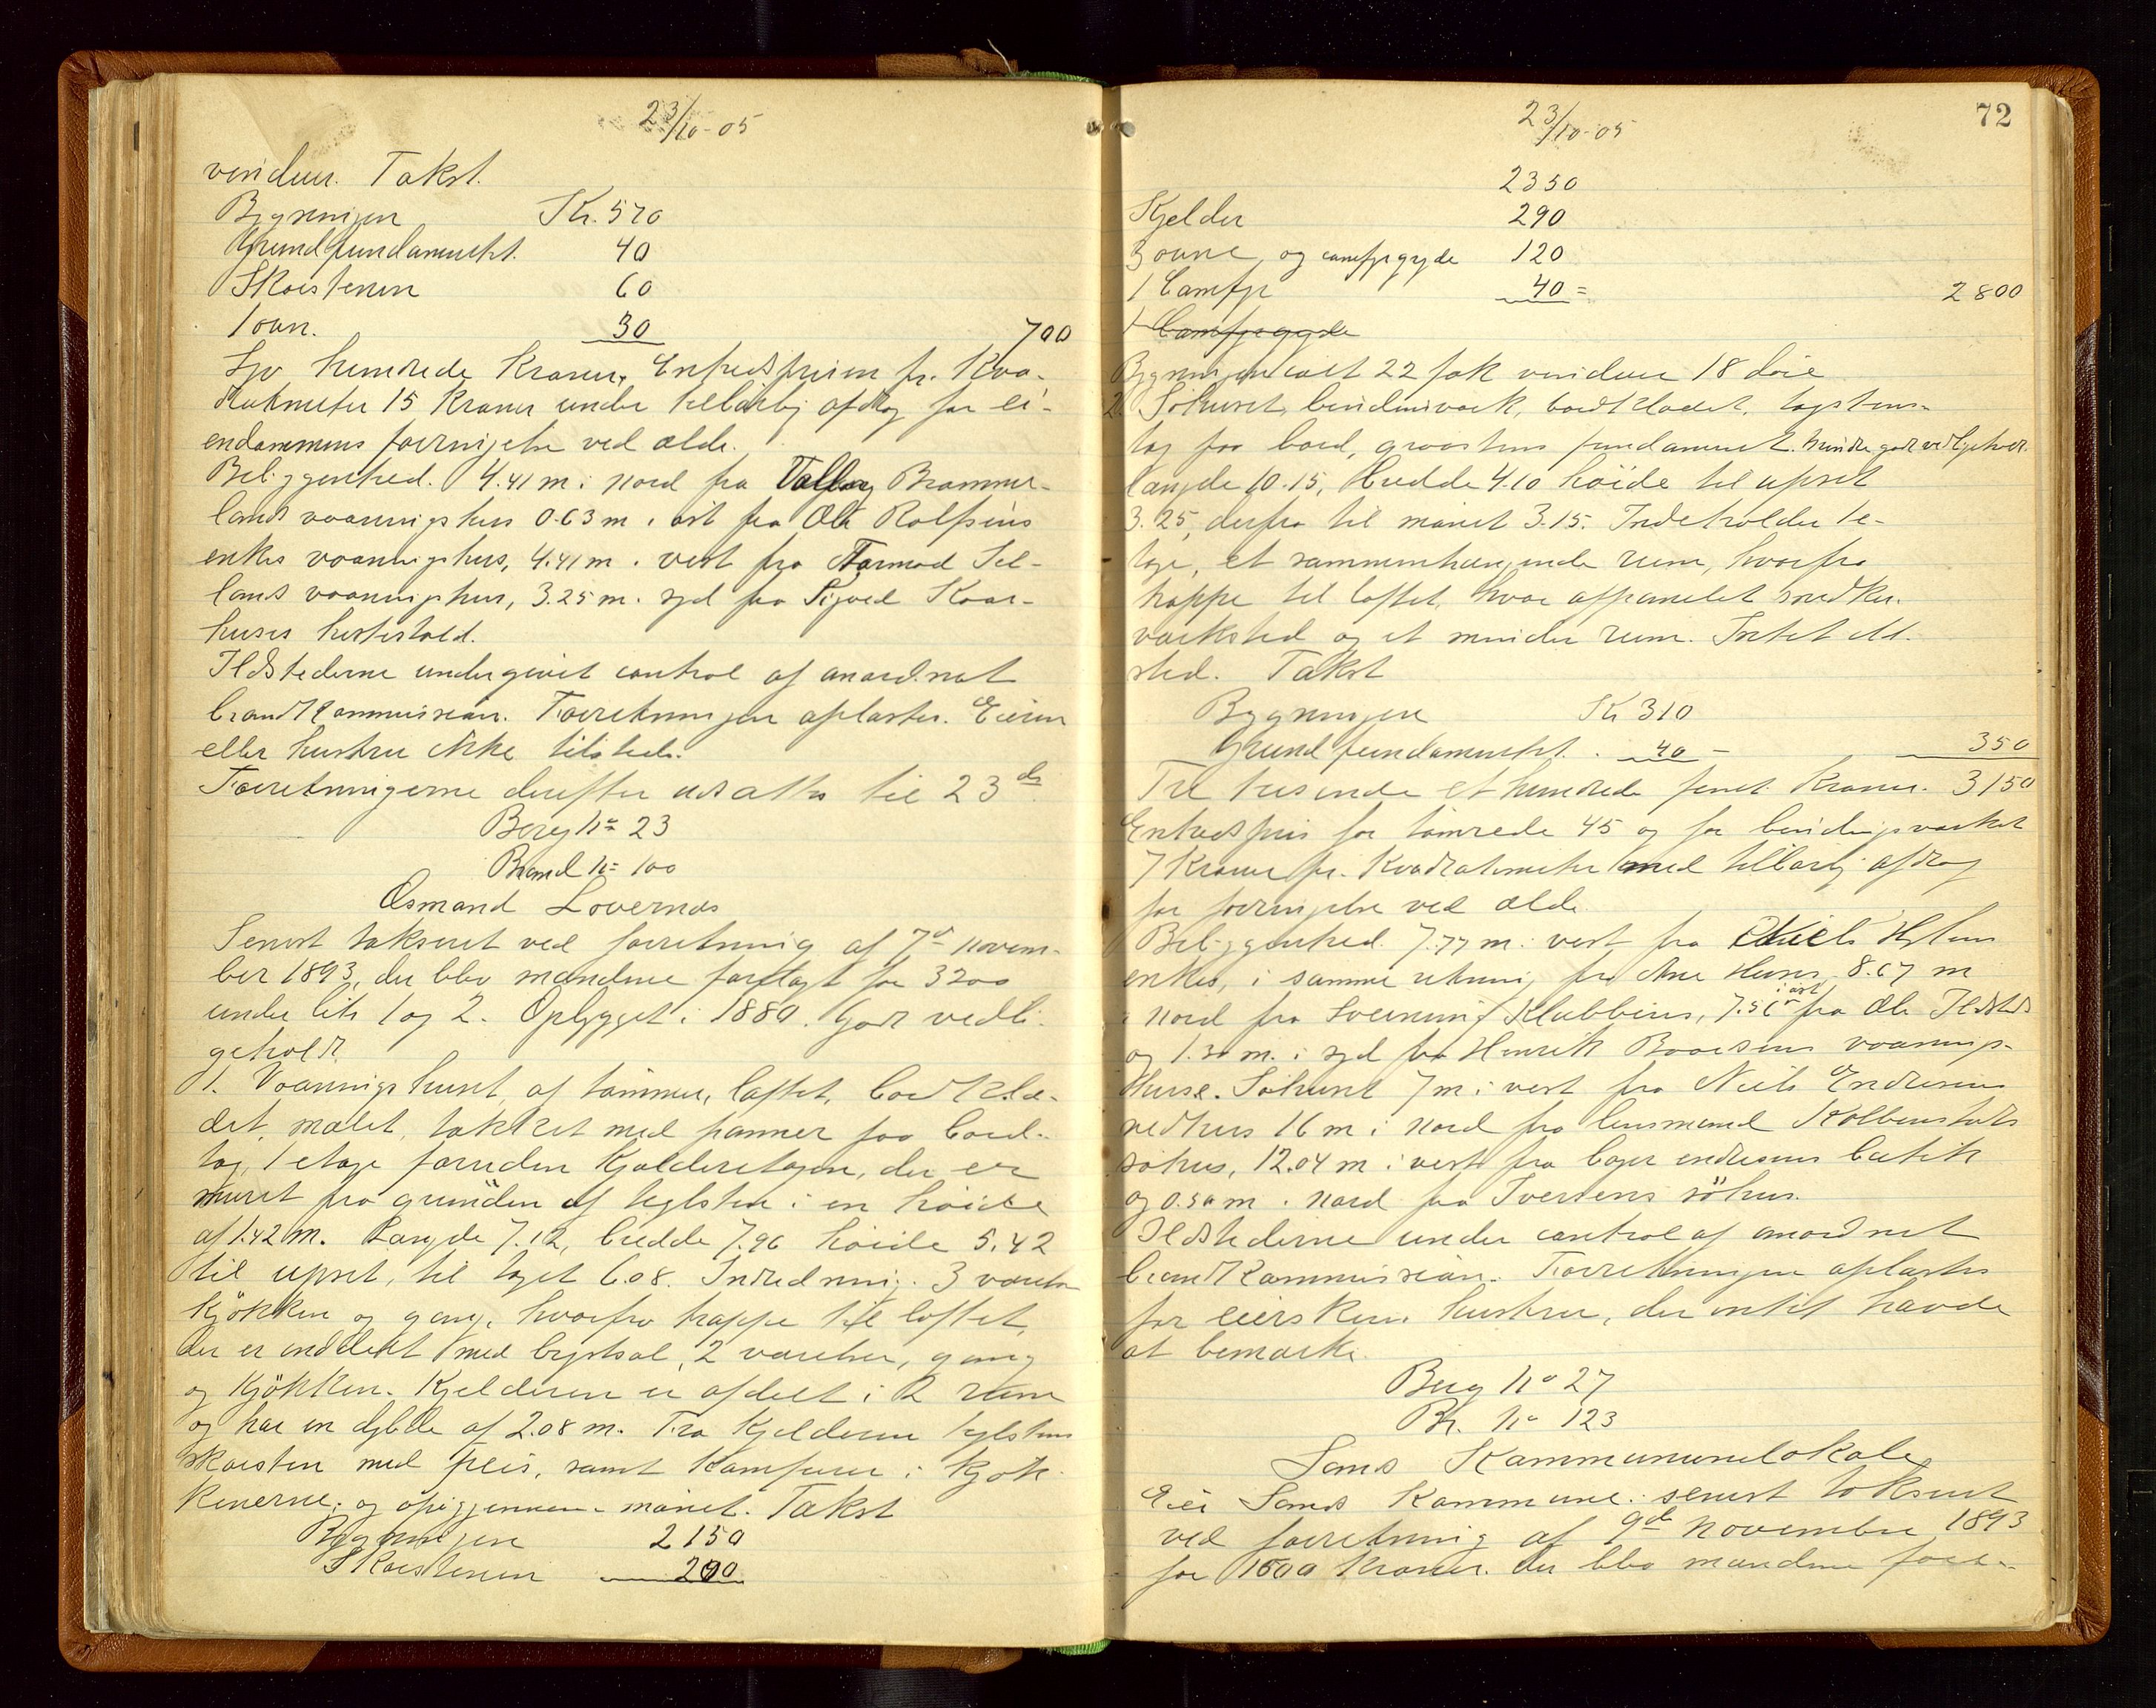 23/10-05
vinduer. Takst.
Bygningen Kr. 570
Grundfundamentet. 40
Skorstenen 60
1 ovn. 30 700
Syv hundrede kroner. Enhedsprisen pr. kva-
dratmeter 15 kroner under tilbørlig afdrag for ei-
endommens forringelse ved ælde.
Beliggenhed. 4.41 m i nord fra Valborg Brommer-
lands vaaningshus 0.63 m. i øst fra Ole Rolfsens
enkes vaaningshus, 4.41 m. vest fra Tormod Sel-
lands vaaningshus, 3.25 m. syd fra Sigved Kaar-
huses hestestald.
Ildstederne undergivet control af anordnet
brandkommission. Forretningen oplæstes. Eieren
eller hustru ikke tilstede.
Forretningerne derefter udsattes til 23de.
Bereg No 23
Brand No 100
Osmand Lovernæs
Senest takseret ved forretning af 7de novem-
ber 1893, der blev mændene forelagt for 3200
under litr 1 og 2. Opbygget i 1880. Godt vedli-
geholdt.
1. Vaaningshuset, af tømmer, loftet, bordklæ-
det, malet, tækket med panner paa bord-
tag, 1 etage foruden kjælderetagen, der er
muret fra grunden af teglsten i en høide
af 1.42 m. Længde 7.12, bredde 7.96 høide 5.42
til upset, til taget 6.08. Indredning. 3 værelser
kjøkken og gang, hvorfra trappe til loftet,
der er inddelt med brystsal, 2 værelser, gang
og kjøkken. Kjelderen er afdelt i 2 rum
og har en dybde af 2.08 m. Fra kjelderen teglstens
skorsten med peis, samt komfurer i kjøk-
kenerne, og opigjennem mønet. Takst
Bygningen 2150
Skorstenen 200
72
23/10-05
2350
Kjelder 290
3 ovne og camfyrgryde 120
1 Camfyr 40 = 2800
1 Camfyrgryde
Bygningen ialt 22 fak vinduer 18 døre
2. Søhuset, bindingsværk, bordklædet, tagstens-
tag paa bord, graastens fundament. Mindre godt vedligeholdt.
længde 10.15, bredde 4.10 høide til upset
3.25, derfra til mønet 3.15. Indeholder 1 e-
tage, et sammenhængende rum, hvorfra
trappe til loftet, hvor afpanelet snedker-
værksted og et mindre rum. Intet ild-
sted. Takst
Bygningen Kr 310
Grundfundamentet. 40 - 350
Tre tusinde et hundrede femti kroner. 3150
Enhedspris for tømrede 45 og for bindingsværket
7 kroner pr. kvadratmeter med tilbørlig afdrag
for forringelse ved ælde.
Beliggenhed. 7.77 m. vest fra Niels Hylens
enkes, i samme retning fra Ane Huses 8.67 m
i nord fra Sveinung Klubbens, 7.56 i øst fra Ole Ilstads
og 1.30 m. i syd fra Henrik Boaesens vaanings-
huse. Søhuset 7 m i vest fra Niels Endresens
nedhus 16 m i nord fra lensmand Kolbenstvedts
søhus, 12.04 m i vest fra Enderesens butik
og 0.50 m. nord fra Iversens søhus.
Ildstederne under control af anordnet
brandkommission. Forretningen oplæstes
for eierskens hustru, der intet havde
at bemærke.
Bereg No 27
Br. No 123
Sands Kommunelokale
Eier Sands kommune. senest takseret
ved forretning af 9de november 1893
for 1600 kroner. der blev mændene fore-